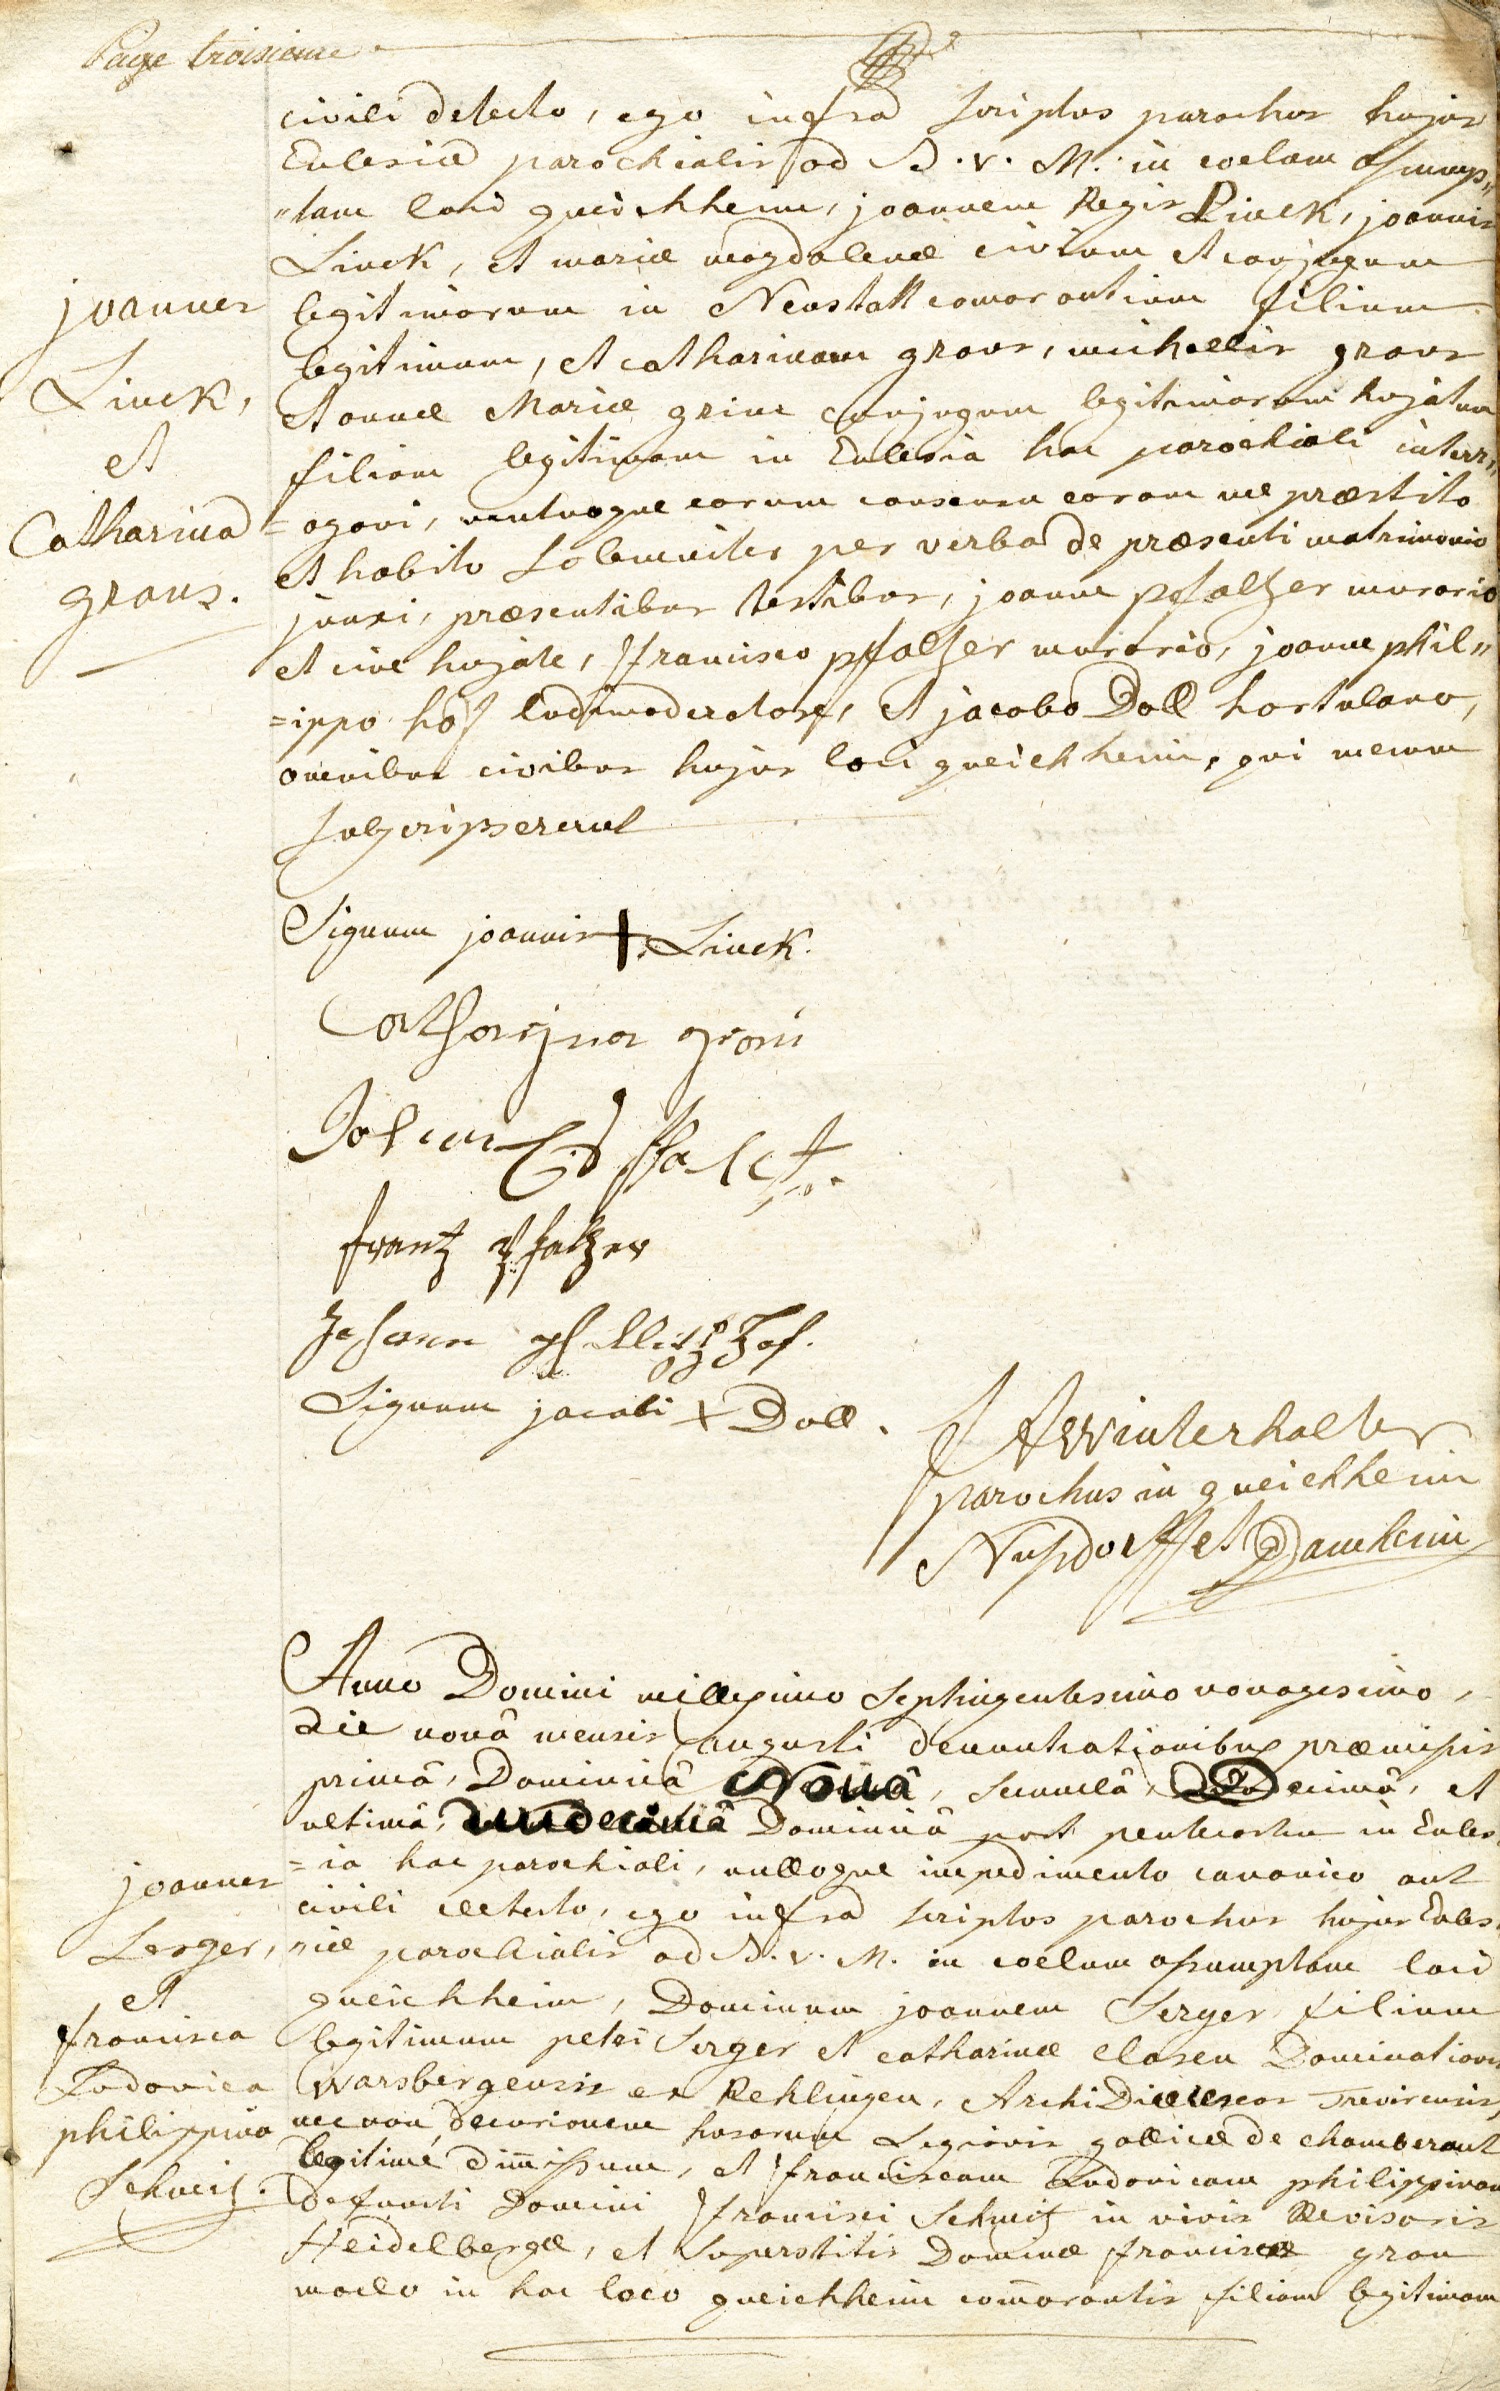 Page troisieme
civili detecto, ego infra scriptus parochus hujus
Ecclesiæ parochialis ad B. V. M. in coelum assump„
„tam loci queichheim, joannem Regis Linck, joannis
Linck, et mariæ magdalenæ civium et conjugum
legitimorum in Neustatt comorantium filium
legitimum, et catharinam graus, michaelis graus
et annæ Mariæ grim conjugum legitimorum hujatum
filiam legitimam in Ecclesia hac parochiali interr„
=ogavi, mutuoque eorum consensu coram me præstito
et habito Solemniter per verba de præsenti matrimonio
junxi, præsentibus testibus, joanne pfaltzer murario
et cive hujate, francisco pfaltzer murario, joanne phil„
=ippo hof ludimoderatore, et jacobo Doll hortulano,
omnibus civibus hujus loci queichheim, qui mecum
subscripserunt
joannes
Linck,
et
Catharina
graus.
Signum joannis + Linck.
Catharina graus
frantz pfaltzer
Johann phillipp Hof.
Signum jacobi + Doll.
JAWinterhalter
parochus in queichheim
Nusdorff et Damheim
Anno Domini millesimo Septingentesimo nonagesimo,
die nonâ mensis augusti denuntiationibus præmissis
primâ, Dominicâ Nonâ, secundâ, Decimâ, et
ultimâ, undecimâ Dominicâ post pentecosten in Eccles„
=ia hac parochiali, nulloque impedimento canonico aut
civili detecto, ego infra scriptus parochus hujus Eccles„
siæ parochialis ad B. V. M. in coelum assumptam loci
queichheim, Dominum joannem Serger filium
legitimum petri Serger et catharinæ clasen Dominationis
warsbergensis ex Rehlingen, ArchiDiœceseos Trevirensis,
nec non decurionem husarum Legionis gallicæ de chamborant
legitimè dimissum, et franciscam Ludovicam philippinam
defuncti Domini francisci Schmitz in vivis Revisoris
Heidelbergæ, et Superstitis Dominæ franciscæ grau
modo in hac loco queichheim comorantis filiam legitimam
joannes
Serger,
et
francisca
Ludovica
philippina
Schmitz.